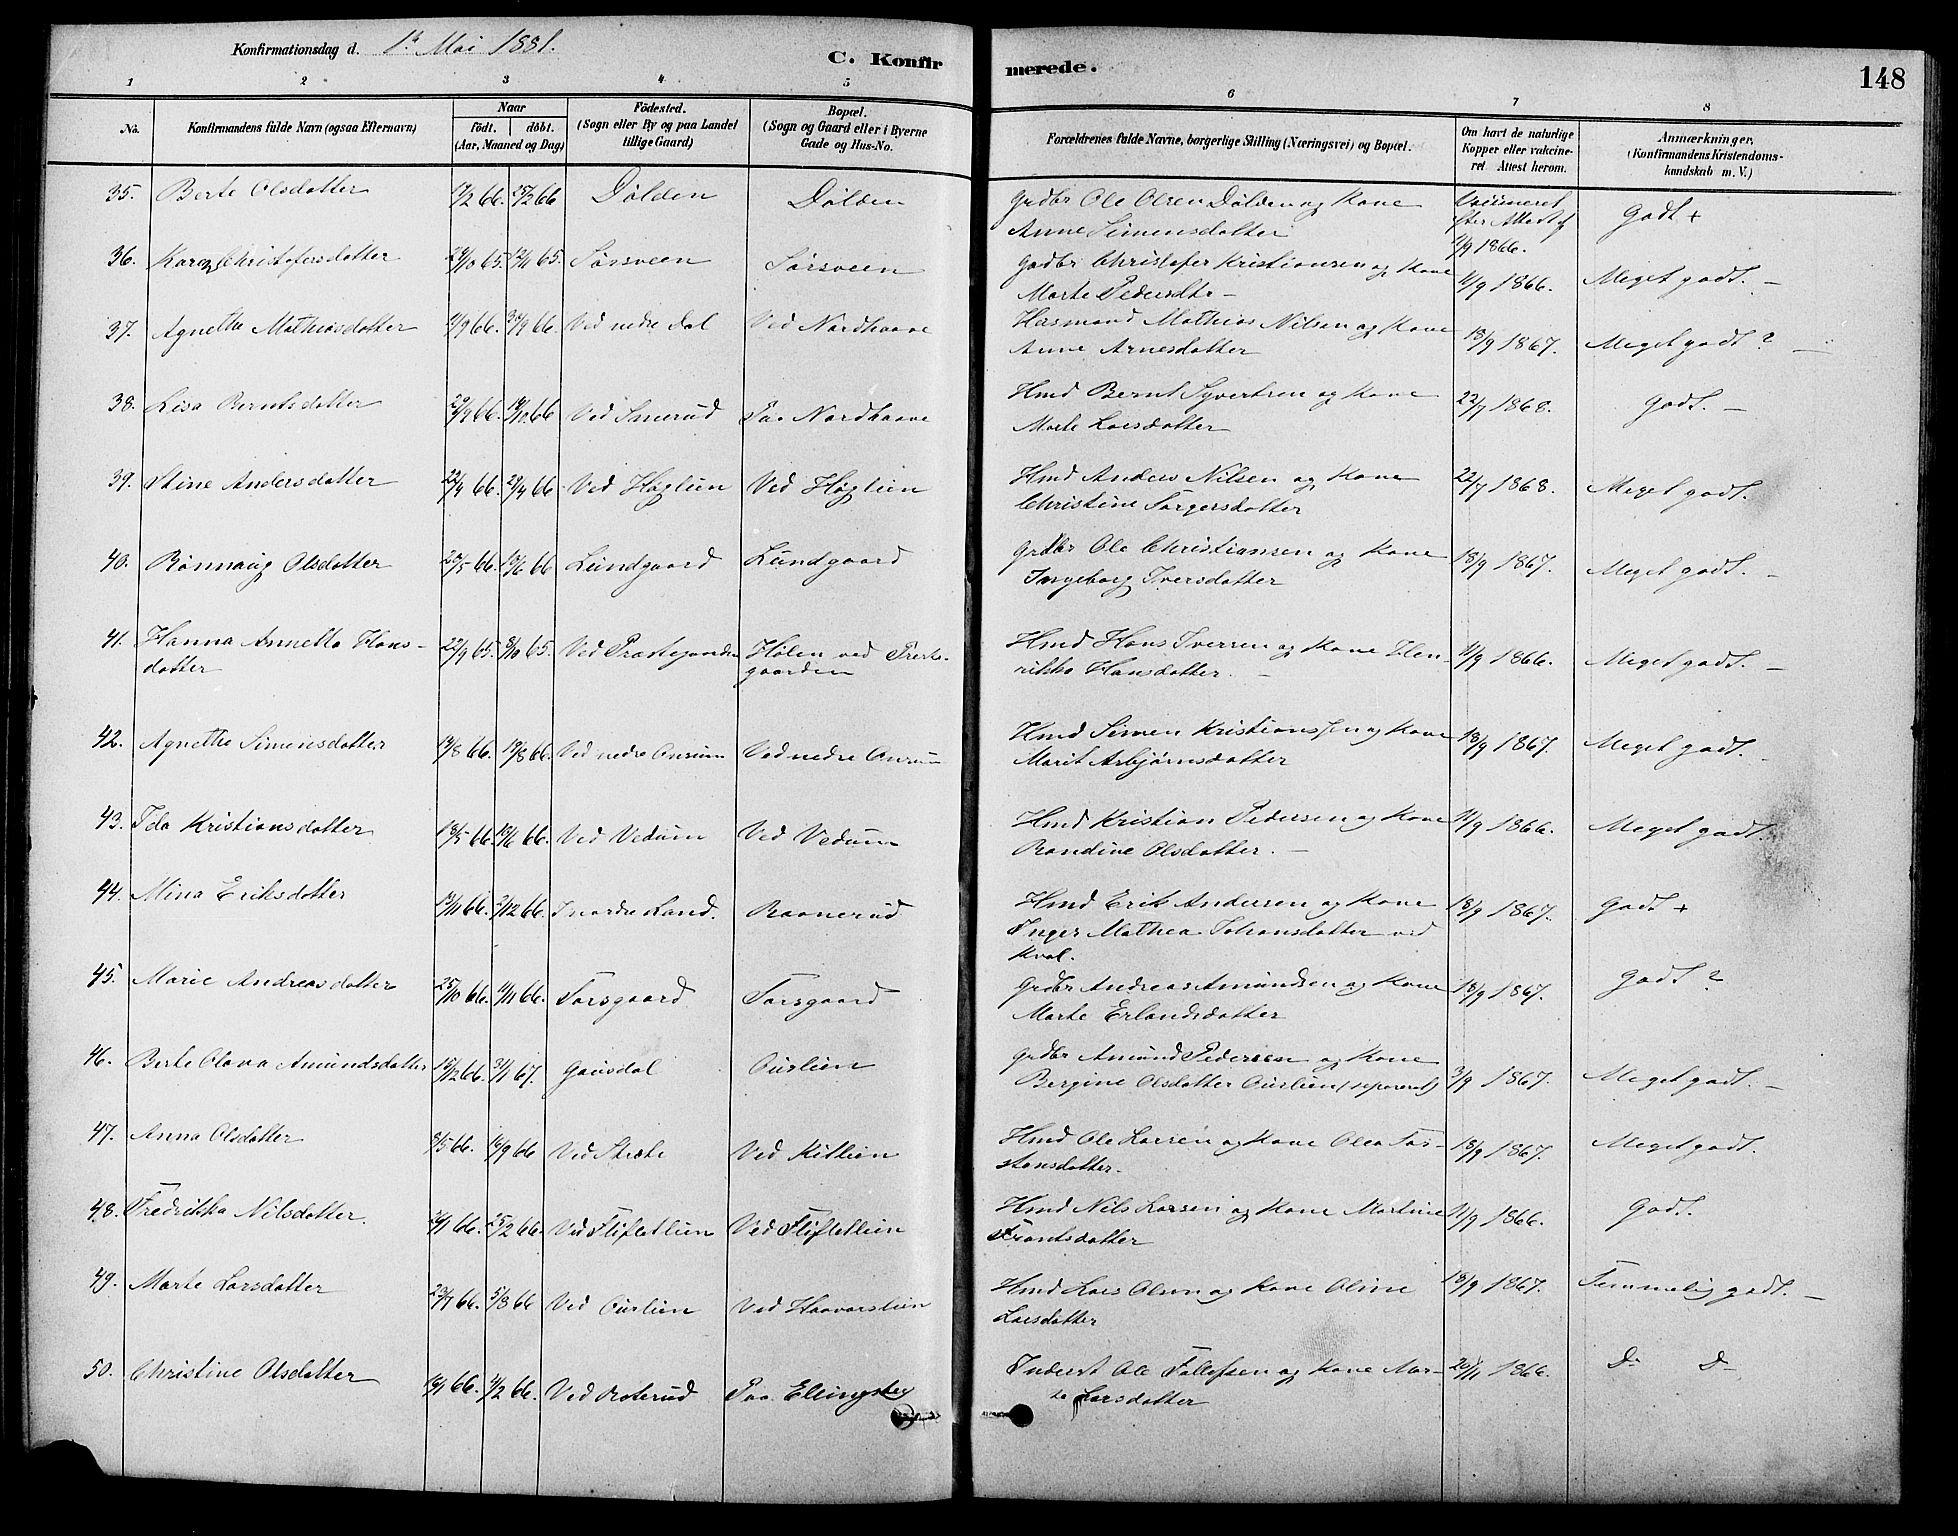 Konfirmationsdag d. 1ste Mai 1881.
C. Konfirmerede.
148
1 2 3 4 5 6 7 8
No.
Konfirmandens fulde Navn (ogsaa Efternavn)
Naar
födt. döbt.
(Aar, Maaned og Dag)
Födested.
(Sogn eller By og paa Landet
tillige Gaard)
Bopæl.
(Sogn og Gaard eller i Byerne
Gade og Hus-No.
Forældrenes fulde Navne, borgerlige Stilling (Næringsvei) og Bopæl.
Om havt de naturlige
Kopper eller vakcine-
ret Attest herom.
Anmærkninger,
(Konfirmandens Kristendoms-
kundskab m. V.)
35. Berte Olsdatter 17/2 66. 25/2 66 Dølden Dølden Grdbr Ole Olsen Dølden og Kone
Anne Simensdatter
Godt +
11/9 1866.
36. Karen Christofersdatter 29/10 65. 12/11 65. Sørsveen Sørsveen Gadbr Christofer Kristiansen og Kone
Marte Pedersdtr - 11/9 1866. Meget godt. -
37. Agnethe Mathiasdatter 11/9 66. 30/9 66. Ved nedre Dal Ved Nordhaave Husmand Mathias Nilsen og Kone
Anne Arnesdatter 18/9 1867. Meget godt ? -
38. Lisa Berntsdatter 29/9 66. 14/10 66 Ved Smerud Paa Nordhaave Hmd Bernt Syvertsen og Kone
Marte Larsdatter 22/7 1868. Godt. -
39. Stine Andersdatter 22/4 66. 29/4 66 Ved Høglien Ved Høglien Hmd Anders Nilsen og Kone
Christine Torgersdatter 22/7 1868. Meget godt.
40. Rønnaug Olsdatter 20/5 66. 10/6 66 Lundgaard Lundgaard Grdbr Ole Christiansen og Kone
Ingeborg Iversdatter 18/9 1867. Meget godt. -
41. Hanna Annetta Hans-
datter 22/9 65. 8/10 65. Ved Præstegaarden Hølen ved Præste-
gaarden Hmd Hans Iversen og Kone Hen-
rikke Hansdatter. - 11/9 1866. Meget godt. -
42. Agnethe Simensdatter 14/8 66. 19/8 66. Ved nedre Onsum Ved nedre Onsum Hmd Simen Kristiansen og Kone
Marit Asbjørnsdatter 18/9 1867. Meget godt. -
43. Ida Kristiansdatter 18/5 66. 10/6 66. Ved Vedum Ved Vedum Hmd Kristian Pedersen og Kone
Randine Olsdatter. - 11/9 1866. Meget godt.
44. Mina Eriksdatter 12/11 66. 2/12 66. I nordre Land. Baanerud Hmd Erik Andersen og Kone
Inger Mathea Johansdatter ved
Kval. 18/9 1867. Godt +
45. Marie Andreasdatter 25/10 66. 11/11 66. Torsgaard. Torsgaard Grdbr Andreas Amundsen og Kone
Marte Erlandsdatter 18/9 1867. Godt ?
46. Berte Olava Amundsdatter 15/12 66. 31/1 67. Gausdal Ourlien Grdbr Amund Pedersen og Kone
Bergine Olsdatter Ourlien (separeret) 3/9 1867. Meget godt. -
47. Anna Olsdatter 8/5 66. 16/9 66 Ved Stræte Ved Kitlien Hmd Ole Larsen og Kone Olea Tor-
stensdatter. 18/9 1867. Meget godt.
48. Fredrikka Nilsdatter. 26/1 66. 25/2 66. Ved Fliflatlien Ved Fliflatlien Hmd Nils Larsen og Kone Martine
Frantsdatter 11/9 1866. Godt.
49. Marte Larsdatter 23/7 66. 5/8 66 Ved Ourlien Ved Haavarslien Hmd Lars Olsen og Kone Oline
Larsdatter 18/9 1867. Temmelig godt. -
50. Christine Olsdatter 16/1 66. 4/2 66. Ved Roterud Paa Ellingsby Inderst Ole Tollefsen og Kone Mar-
te Larsdatter 20/11 1866. Do Do